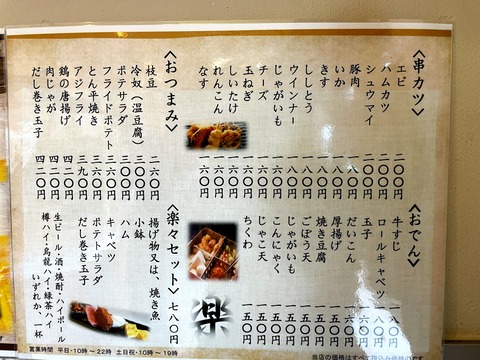 〈串カツ〉
エビ 二〇〇円
ハムカツ 二〇〇円
シュウマイ 二〇〇円
豚肉 一八〇円
いか 一八〇円
きす 一八〇円
ししとう 一六〇円
ウインナー 一八〇円
じゃがいも 一六〇円
チーズ 一六〇円
玉ねぎ 一六〇円
しいたけ 一六〇円
れんこん 一六〇円
なす 一六〇円
〈おつまみ〉
枝豆 二六〇円
冷奴（温豆腐） 三〇〇円
ポテサラダ 三〇〇円
フライドポテト 三六〇円
とん平焼き 三六〇円
アジフライ 三九〇円
鶏の唐揚げ 四二〇円
肉じゃが 四二〇円
だし巻き玉子 四二〇円
〈おでん〉
牛すじ 一八〇円
ロールキャベツ
玉子
だいこん
厚揚げ
焼き豆腐
ごぼう天
じゃがいも
こんにゃく
じゃこ天
ちくわ
〈楽々セット〉 七八〇円
揚げ物又は、焼き魚
小鉢
ハム
キャベツ
ポテトサラダ
だし巻き玉子
生ビール・酒・焼酎・ハイボール
樽ハイ・烏龍ハイ・緑茶ハイ
いずれか、一杯
楽
営業時間 平日・10時～22時 土日祝・10時～19時
当店の価格はすべて税込み価格です